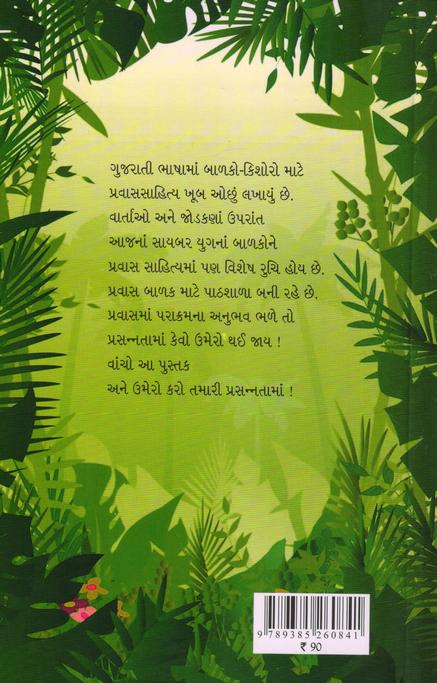 ગુજરાતી ભાષામાં બાળકો-કિશોરો માટે
પ્રવાસસાહિત્ય ખૂબ ઓછું લખાયું છે.
વાર્તાઓ અને જોડકણાં ઉપરાંત
આજનાં સાયબર યુગનાં બાળકોને
પ્રવાસ સાહિત્યમાં પણ વિશેષ રુચિ હોય છે.
પ્રવાસ બાળક માટે પાઠશાળા બની રહે છે.
પ્રવાસમાં પરાક્રમના અનુભવ ભળે તો
પ્રસન્નતામાં કેવો ઉમેરો થઈ જાય !
વાંચો આ પુસ્તક
અને ઉમેરો કરો તમારી પ્રસન્નતામાં !
9 789385 260841
₹ 90